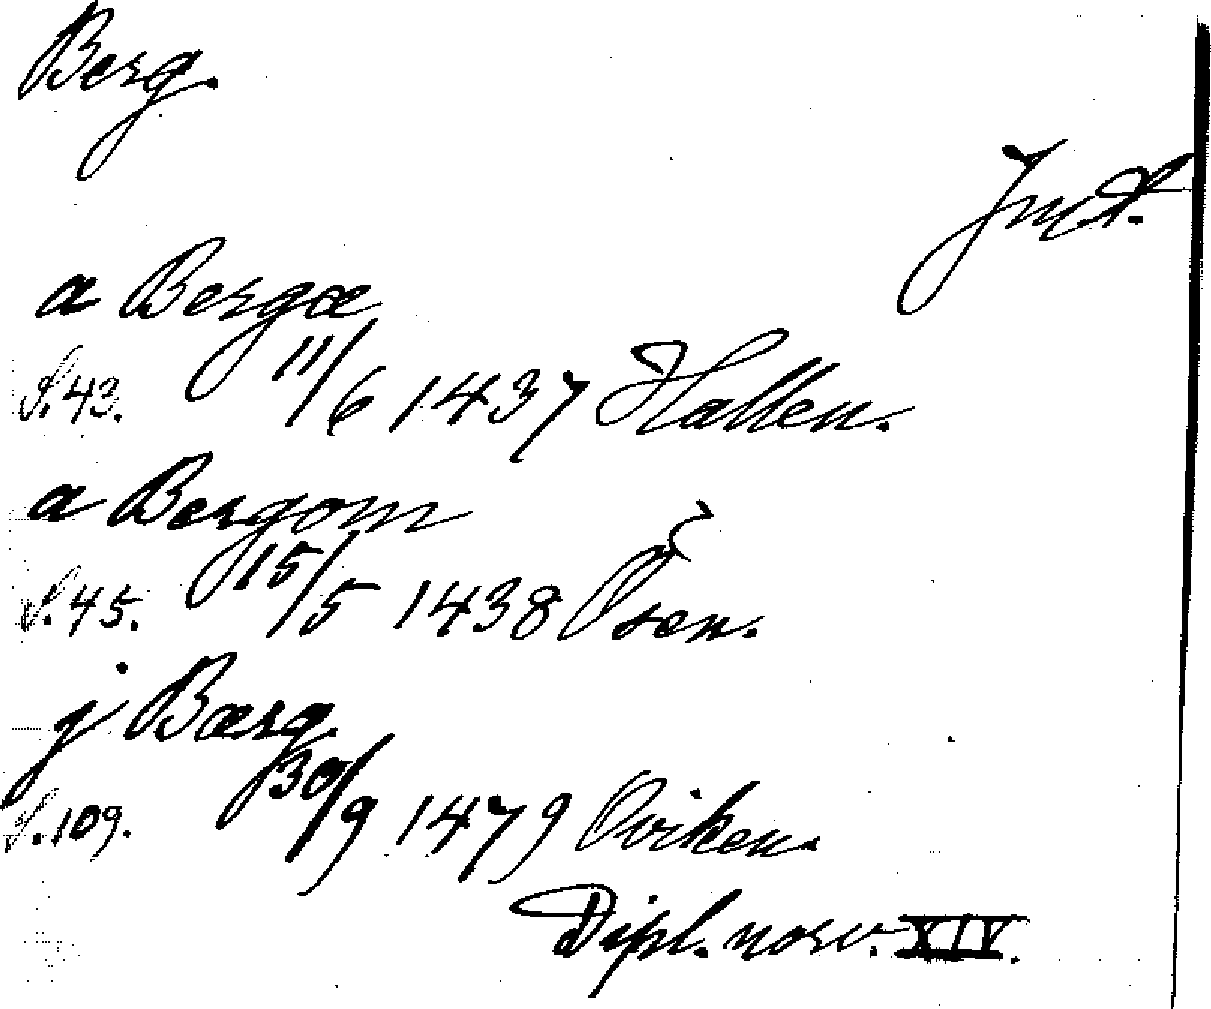 Berg.
Jmt.
a Bergæ
S. 43. 11/6 1437 Hallen.
a Bergom
S. 45. 15/5 1438 Åsen.
j Bærg
S. 109. 30/9 1479 Oviken.
Dipl. norv. XIV.